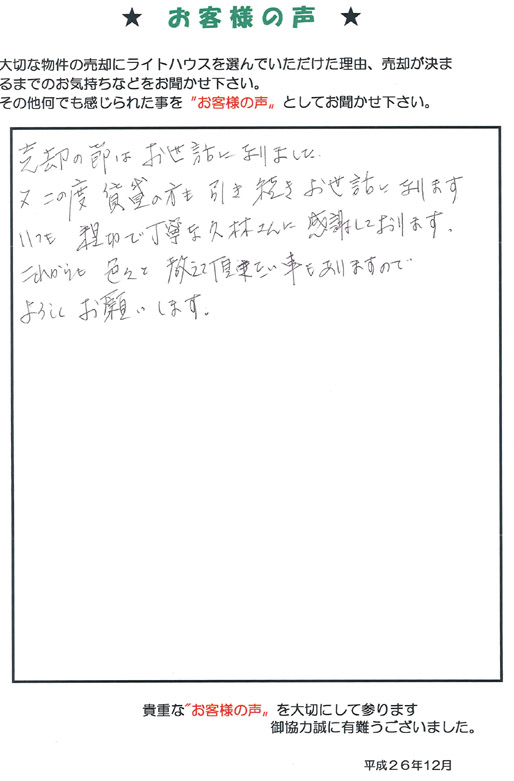 ★ お客様の声 ★
大切な物件の売却にライトハウスを選んでいただけた理由、売却が決ま
るまでのお気持ちなどをお聞かせ下さい。
その他何でも感じられた事を〝お客様の声〟としてお聞かせ下さい。
売却の節は お世話になりました
又 この度 賃貸の方も 引き続き お世話になります
いつも 親切で丁寧な久林さんに 感謝しております。
これからも 色々と 教えて頂きたい事もありますので
よろしく お願いします。
貴重な〝お客様の声〟を大切にして参ります
御協力誠に有難うございました。
平成26年12月